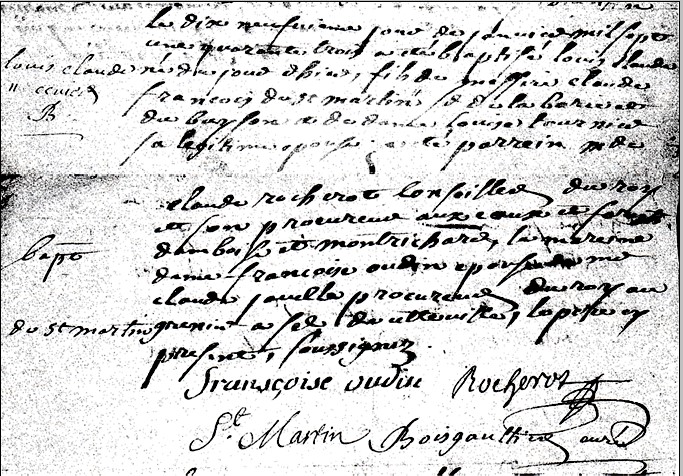 le dix neufieme jour de janvier mil sept
cens quarante trois a eté baptisé louis claude
louis claude
né du jour d'hier, fils de messire claude
françois de st martin sr de la barre et
B.
du buysson et de dame louise
sa legitime epouse a eté parrein mre
claude rocherot conseiller du roy
et son procureur aux eaux et forests
bapt
damboise et montrichard, la mareine
dame françoise oudin epouse de mre
claude procureur du roy au
du st martin
grenier a sel de le pere
present, soussignez
françoise oudin Rocherot
St. Martin Boisgaultier curé